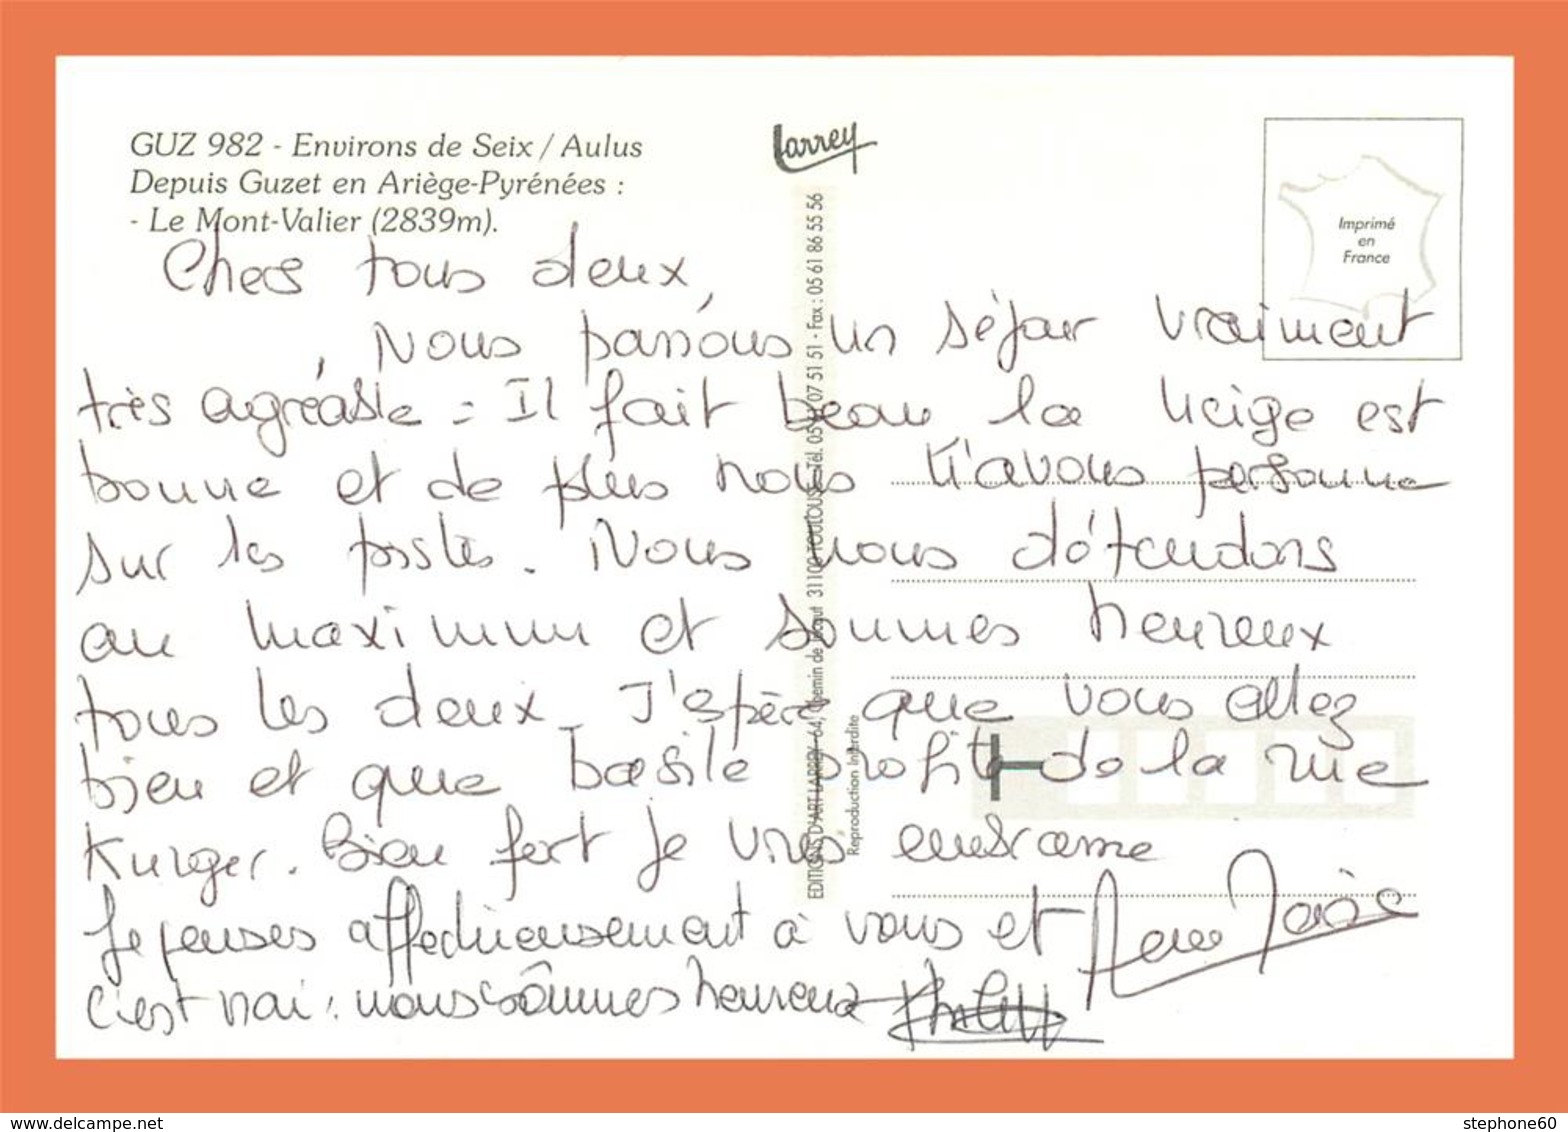 GUZ 982 - Environs de Seix / Aulus
Depuis Guzet en Ariège-Pyrénées :
- Le Mont-Valier (2839m).
Larrey
Imprimé
en
France
EDITIONS D'ART LARREY - 64, Chemin de 31100 TOULOUSE - Tél. 05 61 07 51 51 - Fax : 05 61 86 55 56
Reproduction Interdite
Chers tous deux,
Nous passons un séjour vraiment
très agréable : Il fait beau la neige est
bonne et de plus nous n'avons personne
sur les pistes. Nous nous détendons
au maximum et sommes heureux
tous les deux. J'espère que vous allez
bien et que basile profite de la rue
Kurger. Bien fort je vous embrasse
Je penses affectueusement à vous et
c'est vrai : nous sommes heureux
stephone60